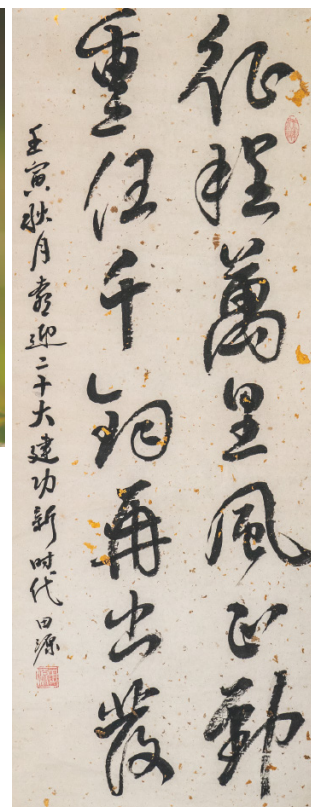 征程萬里風正勁
重任千鈞再出發
壬寅秋月喜迎二十大建功新时代 田源